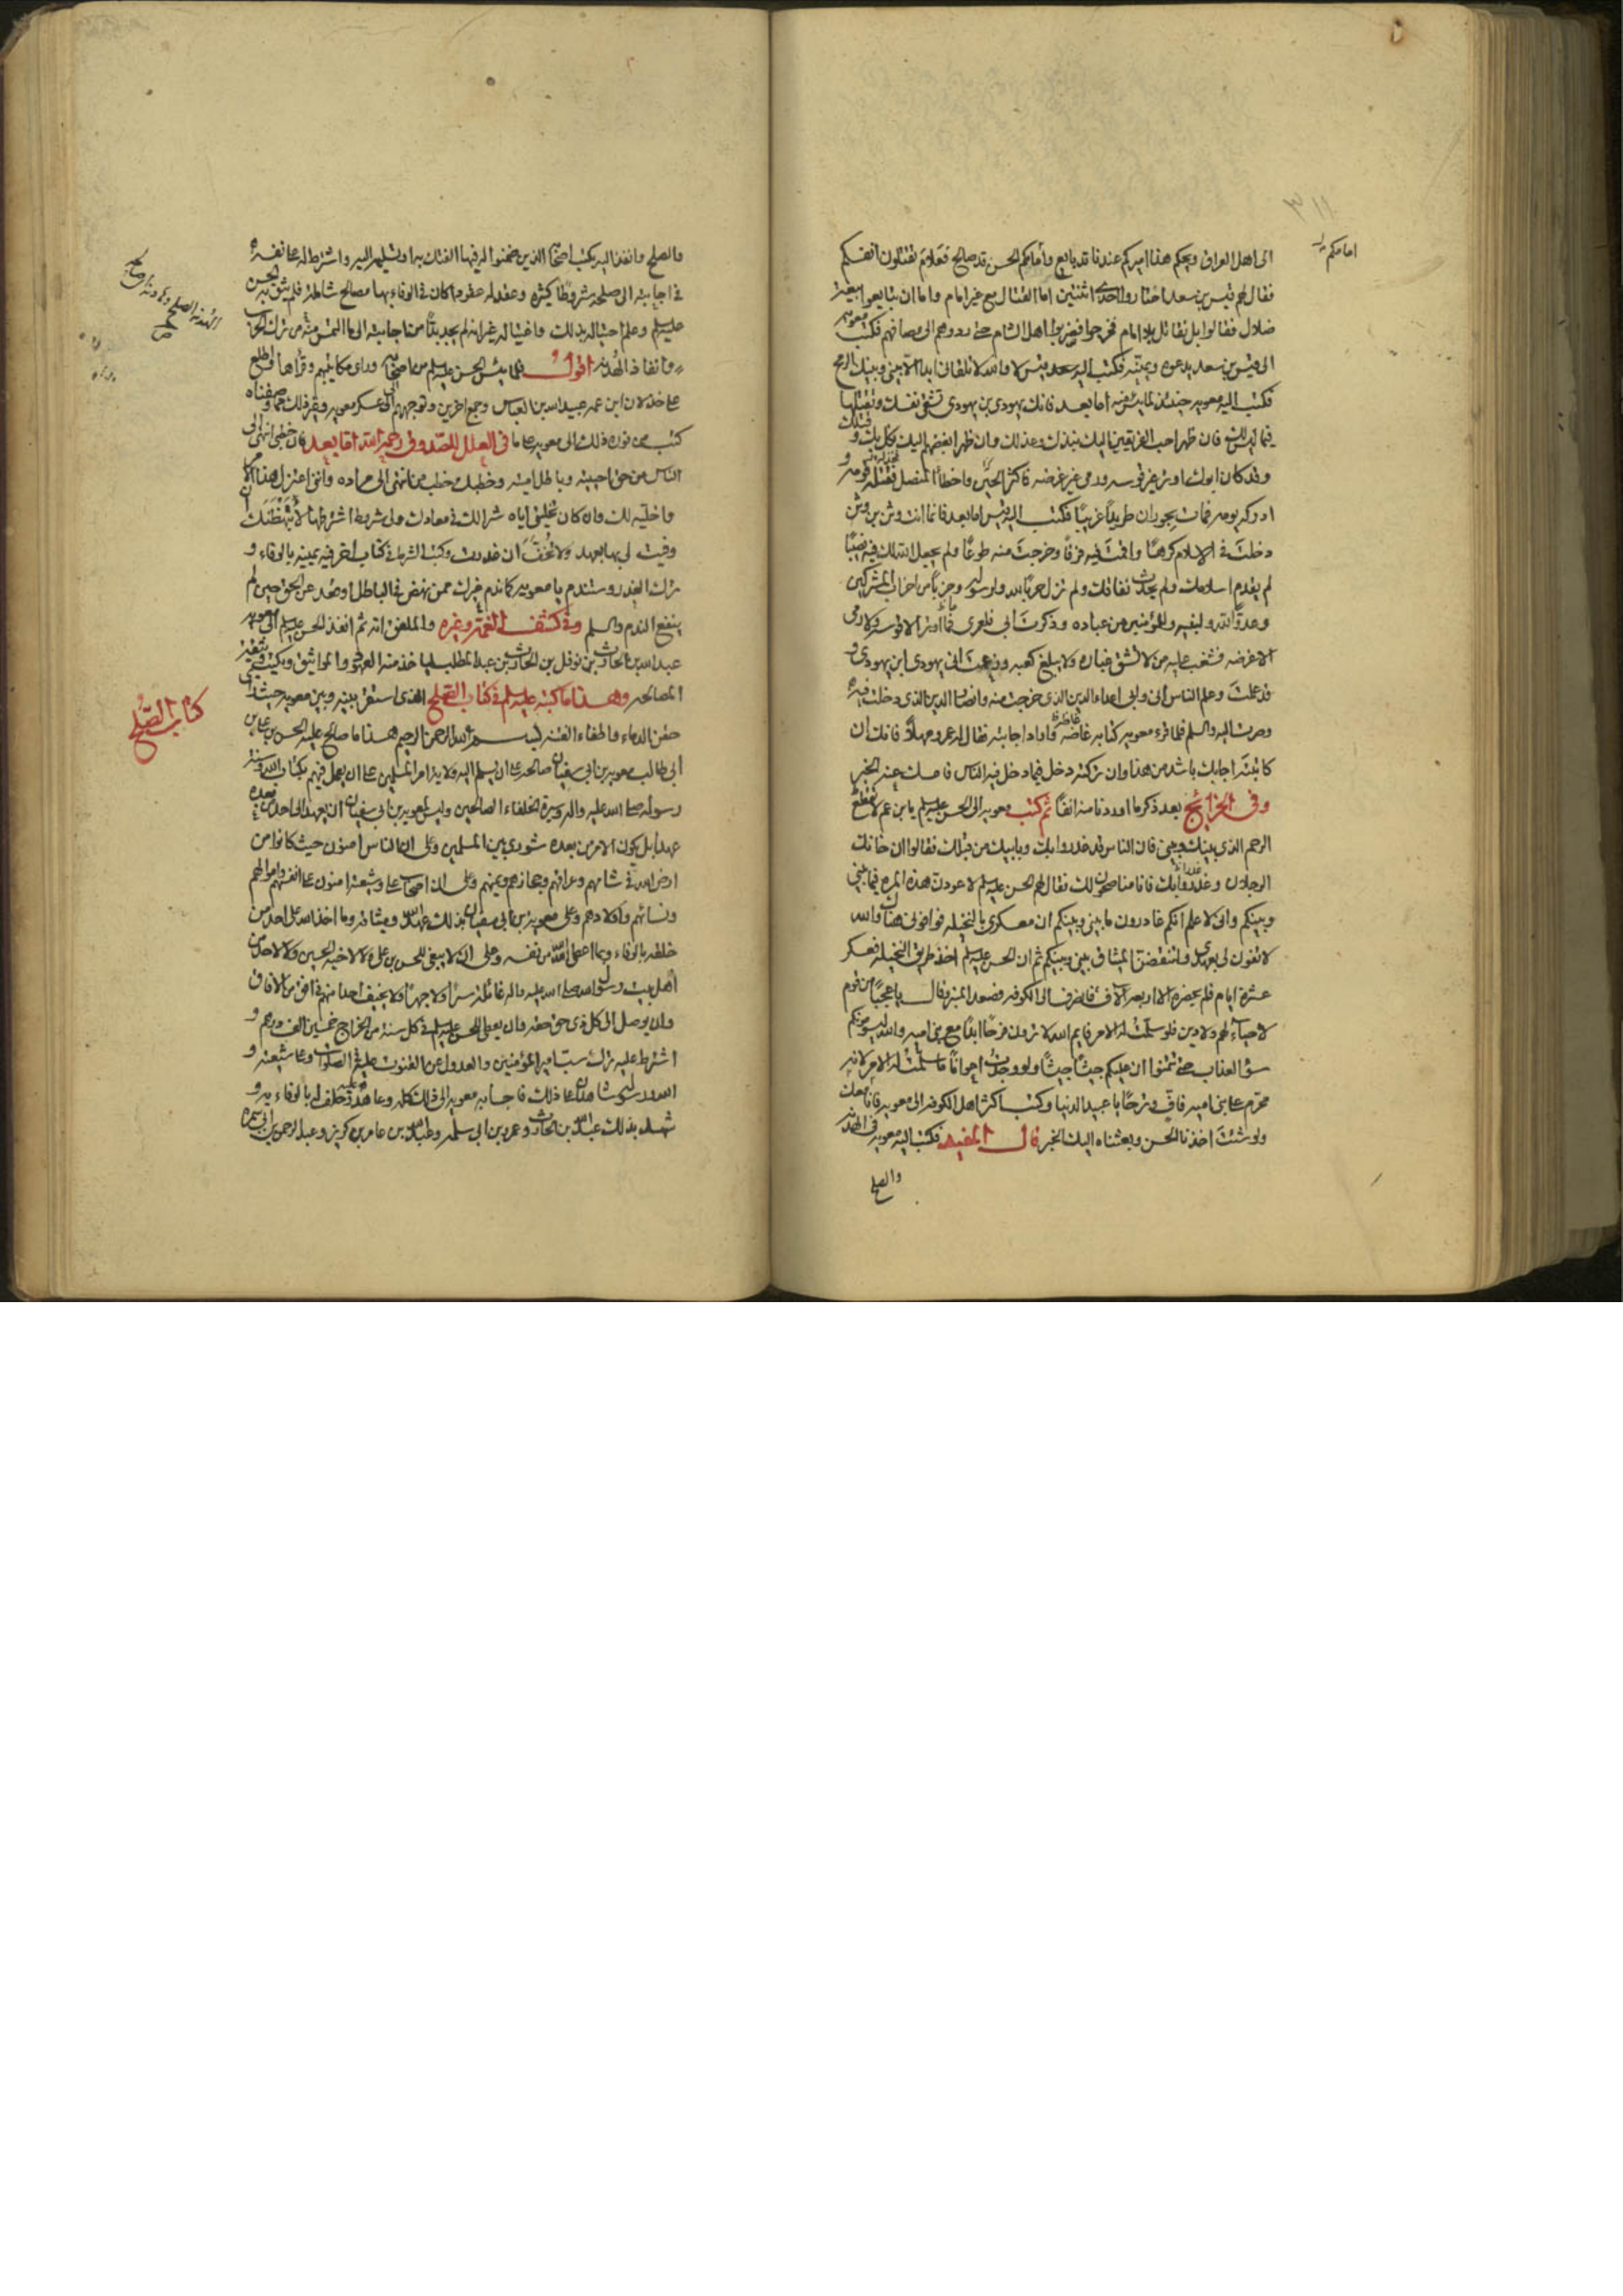 ٣١١
امامكم
الى اهل العراق ويحكم هذا اميركم عندنا قد بايع وامامكم الحسن قد صالح فعلام تقتلون انفسكم
فقال لهم قيس بن سعد اختاروا احدى اثنتين اما القتال مع غير امام واما ان تبايعوا بيعة
ضلال فقالوا بل نقاتل بلا امام فخرجوا فضربوا اهل الشام حتى ردوهم الى مصافهم فكتب معويه
الى قيس بن سعد يدعوه ويمنيه فكتب اليه قيس لا والله لا تلقاني ابدا الا بيني وبينك الرمح
فكتب اليه معويه حينئذ لما يئس منه اما بعد فانك يهودي بن يهودي تشقي نفسك وتقتلها
فيما ليس لك فان ظهر احب الفريقين اليك نبذك وعذلك وان ظهر ابغضهم اليك نكل بك وقتلك
وقد كان ابوك اوتر غير قوسه ورمى غير غرضه فاكثر الحز واخطأ المفصل فخذله قومه و
ادركه يومه فمات بحوران طريداً غريباً فكتب اليه قيس اما بعد فانما انت وثن بن وثن
دخلتَ في الاسلام كرهاً واقمتَ فيه فرقاً وخرجتَ منه طوعاً ولم يجعل الله لك فيه نصيباً
لم يقدم اسلامك ولم يحدث نفاقك ولم تزل حرباً لله ولرسوله وحزباً من احزاب المشركين
وعدوّاً لله ولنبيه وللمؤمنين من عباده وذكرتَ ابي فلعمري ما اوتر الا قوسه ولا رمى
الا غرضه فشغب عليه من لا تشق غباره ولا يبلغ كعبه وزعمتَ اني يهودي ابن يهودي و
قد علمتَ وعلم الناس اني وابي اعداء الدين الذي خرجت منه وانصار الدين الذي دخلت فيه
وصرت اليه والسلم فلما قرء معويه كتابه غاضه واراد اجابته فقال له عمرو مهلاً فانك ان
كاتبته اجابك باشد من هذا وان تركته دخل فيما دخل فيه الناس فامسك عنه الخبر
وفي الخرائج بعد ذكر ما اوردنا منه انفاً ثم كتب معويه الى الحسن عليه السلم يا بن عم لا تقطع
الرحم الذي بينك وبيني فان الناس قد غدروا بك وبابيك من قبلك فقالوا ان خانك
الرجلان وغدروا بك فانا مناصحون لك فقال لهم الحسن عليه السلم لاعودن هذه المره فيما بيني
وبينكم واني لاعلم انكم غادرون ما بيني وبينكم ان معسكري بالنخيله فوافوني هناك والله
لا تفون لي بعهدي ولتنقضن الميثاق بيني وبينكم ثم ان الحسن عليه السلم اخذ طريق النخيله فعسكر
عشرة ايام فلم يحضره الا اربعه آلاف فانصرف الى الكوفه فصعد المنبر وقال يا عجباً من قوم
لا حياء لهم ولا دين فلو سلمت له الامر فايم الله لا ترون فرحاً ابداً مع بني اميه والله ليسومونكم
سوء العذاب حتى تتمنوا ان عليكم جيشاً جيشاً ولو وجدت اعواناً ما سلمت له الامر لانه
محرم على بني اميه فاف وترحاً يا عبيد الدنيا وكتب اكثر اهل الكوفه الى معويه فانا معك
ولو شئتَ اخذنا الحسن وبعثناه اليك الخبر قال المفيد فكتب اليه معويه في الهدنه
والصلح
والصلح وانفذ اليه بكتب اصحابه الذين ضمنوا له فيها الفتك به او تسليمه اليه واشترط له على نفسه
في اجابته الى صلحه شروطاً كثيره وعقد له عقوداً كان في الوفاء بها مصالح شامله فلم يثق به الحسن
عليه السلم وعلم احتياله بذلك واغتياله غير انه لم يجد بداً من اجابته الى ما التمس منه من ترك الحرب
وانفاذ الهدنه اقول فلما يئس الحسن عليه السلم من اصحابه وراى مكاتبتهم وقرأها واطلع
على خذلان ابن عمه عبيد الله بن العباس وجمع اخرين وتوجههم الى عسكر معويه وغير ذلك مما وصفناه
كتب من فوره ذلك الى معويه على ما في العلل للصدوق رحمه الله اما بعد فان خطبي انتهى الى
الياس من حق احييته وباطل امته وخطبك خطب من انتهى الى مراده وانني اعتزل هذا الامر
واخليه لك وان كان تخليتي اياه شراً لك في معادك ولي شروط اشترطها لا تبهظنك ان
وفيت لي بها بعهد ولا تخف ان غدرت وكتب الشرط في كتاب اخر فيه يمينه بالوفاء و
ترك الغدر وستندم يا معويه كما ندم غيرك ممن نهض في الباطل او قعد عن الحق حين لم
ينفع الندم والسلم وفي كشف الغمة وغيره والملفق انه ثم انفذ الحسن عليه السلم الى معويه
عبد الله بن الحارث بن نوفل بن الحارث بن عبد المطلب لياخذ منه العهود والمواثيق ويكتب
المصالحه وهذا ما كتبه عليه السلم في كتاب الصلح الذي استقر بينه وبين معويه حيث راى
حقن الدماء واطفاء الفتنه بسم الله الرحمن الرحيم هذا ما صالح عليه الحسن بن علي بن
ابي طالب معويه بن ابي سفيان صالحه على ان يسلم اليه ولاية امر المسلمين على ان يعمل فيهم بكتاب الله وسنة
رسوله صلى الله عليه واله وسيرة الخلفاء الصالحين وليس لمعويه بن ابي سفيان ان يعهد الى احد من بعده
عهداً بل يكون الامر من بعده شورى بين المسلمين وعلى ان الناس امنون حيث كانوا من
ارض الله في شامهم وعراقهم وحجازهم ويمنهم وعلى ان اصحاب علي وشيعته امنون على انفسهم واموالهم
ونسائهم واولادهم وعلى معويه بن ابي سفيان بذلك عهد الله وميثاقه وما اخذ الله على احد من
خلقه بالوفاء وبما اعطى الله من نفسه وعلى ان لا يبغي للحسن بن علي ولا لاخيه الحسين ولا لاحد من
اهل بيت رسول الله صلى الله عليه واله غائلة سراً ولا جهراً ولا يخيف احداً منهم في افق من الافاق
وان يوصل الى كل ذي حق حقه وان يعطي الحسن عليه السلم في كل سنه من الخراج خمسين الف درهم و
اشترط عليه ترك سب امير المؤمنين والعدول عن القنوت عليه في الصلوات وعلى شيعته و
الله ورسوله شاهدان على ذلك فاجابه معويه الى ذلك كله وعاهده عليه وحلف له بالوفاء به و
شهد بذلك عبد الله بن الحارث وعمر بن ابي سلمه وعبد الله بن عامر بن كريز وعبد الرحمن بن ابي سمره
كتاب الصلح